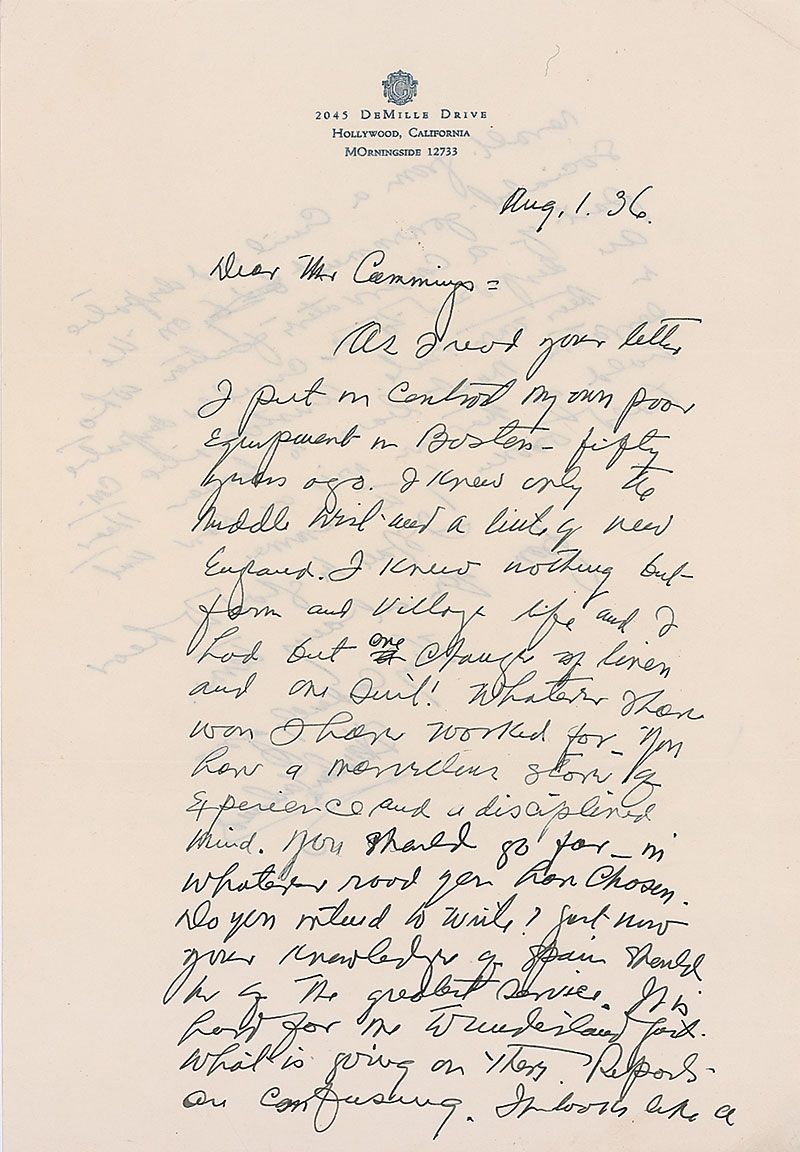 G
2045 DeMille Drive
Hollywood, California
MOrningside 12733
Aug, 1. 36.
Dear Mr Cummings =
As I read your letter
I put in contrast my own poor
Equipment in Boston – fifty
years ago. I knew only the
Middle West and a little of new
England. I knew nothing but
farm and Village life and I
had but one change of linen
and one suit! Whatever I have
won I have worked for – You
have a marvellous store of
Experience and a disciplined
mind. You should go far – in
whatever road you have chosen.
Do you intend to write? Just now
your knowledge of Spain should
be of the greatest service. It is
hard for me to understand just
what is going on there. Reports
are confusing. It looks like a